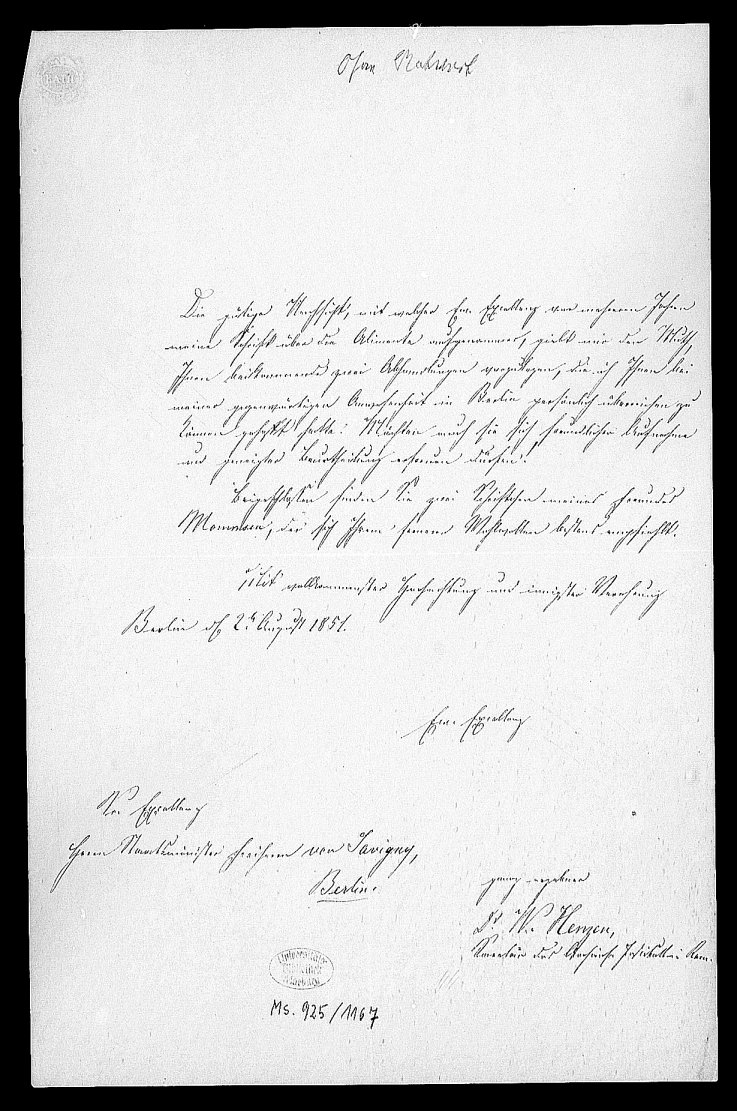 BATH
Ohne Rahmen
Die gütige Nachsicht, mit welcher Ew. Excellenz vor mehreren Jahren
meine Schrift über die Alimente aufgenommen, giebt mir den Muth,
Ihnen beikommende zwei Abhandlungen vorzulegen, die ich Ihnen bei
meiner gegenwärtigen Anwesenheit in Berlin persönlich überreichen zu
können gehofft hatte. Möchten auch sie sich freundlicher Aufnahme
und geneigter Beurtheilung erfreuen dürfen!
Beigeschlossen finden Sie zwei Schriften meines Freundes
Mommsen, der sich Ihrem fernern Wohlwollen bestens empfiehlt.
Mit vollkommenster Hochachtung und innigster Verehrung
Berlin d. 2n August 1851.
Ew. Excellenz
Sr. Excellenz
Herrn Staatsminister Freiherrn von Savigny,
Berlin.
ganz ergebener
Dr. W. Henzen,
Secretär des Archäol. Instituts in Rom.
Universitäts
Bibliothek
Marburg
Ms. 925/1167